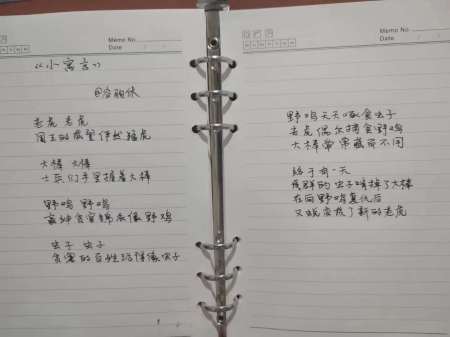 Memo No.
Date / /
《小寓言》
老虎 老虎
国王的威望俨然猛虎
大棒 大棒
士兵们手里握着大棒
野鸡 野鸡
贪官锦衣像野鸡
虫子 虫子
的百姓 像虫子
Memo No.
Date / /
野鸡天天啄食虫子
老虎偶尔捕食野鸡
大棒常常藏而不用
终于有一天
成群的虫子啃掉了大棒
在向野鸡复仇后
又蜕变成了新的老虎